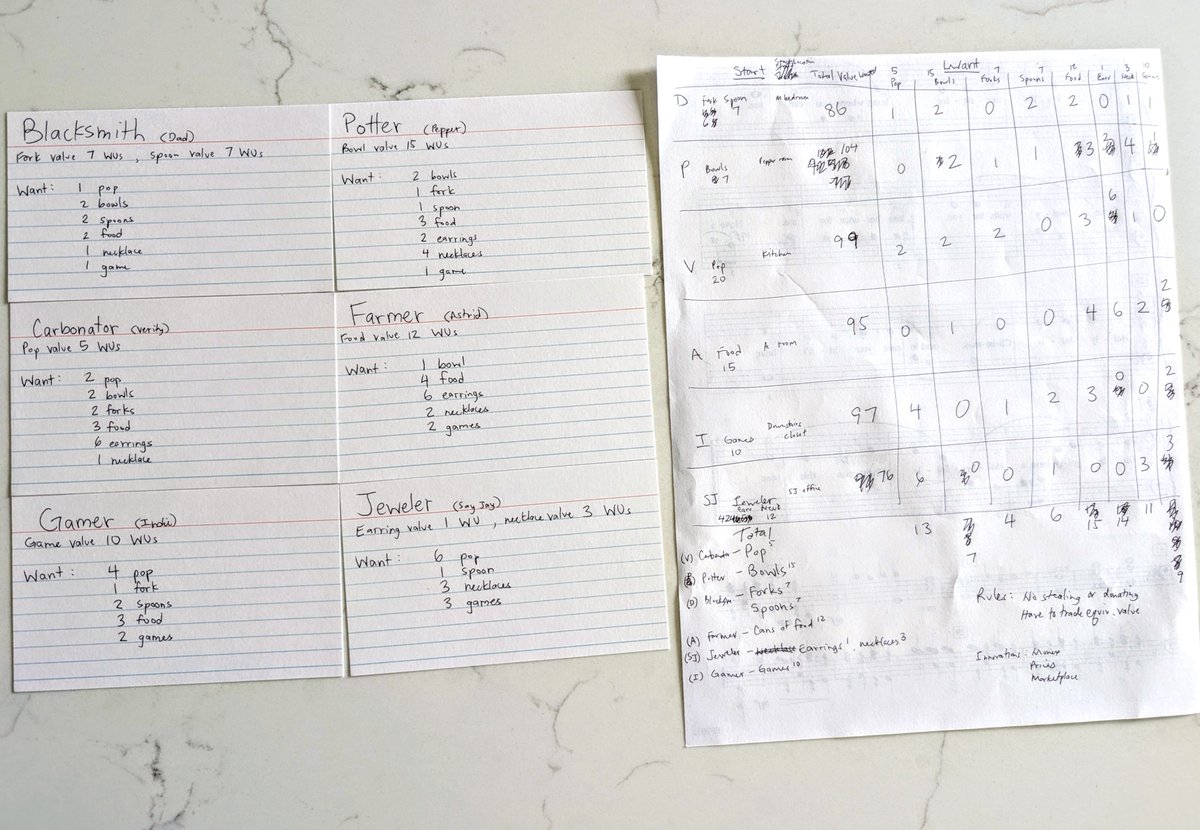 Blacksmith (Dad)
Fork value 7 WUs , Spoon value 7 WUs
Want: 1 pop
2 bowls
2 spoons
2 food
1 necklace
1 game
Potter (Pepper)
Bowl value 15 WUs
Want: 2 bowls
1 fork
1 spoon
3 food
2 earrings
4 necklaces
1 game
Carbonator (Verity)
Pop value 5 WUs
Want: 2 pop
2 bowls
2 forks
3 food
6 earrings
1 necklace
Farmer (Astrid)
Food value 12 WUs
Want: 1 bowl
4 food
6 earrings
2 necklaces
2 games
Gamer (Indie)
Game value 10 WUs
Want: 4 pop
1 fork
2 spoons
3 food
2 games
Jeweler (SayJay)
Earring value 1 WU , necklace value 3 WUs
Want: 6 pop
1 spoon
3 necklaces
3 games
Start Total Value Want
5 15 7 7 12 1 3 10
Pop Bowls Forks Spoons Food Earr Neck Games
D Fork Spoon M bedroom 86 1 2 0 2 2 0 1 1
6 7
P Bowls Pepper room 104 0 2 1 1 3 2 4 1
7
V Pop Kitchen 99 2 2 2 0 3 6 1 0
20
A Food A room 95 0 1 0 0 4 6 2 2
15
I Games Downstairs closet 97 4 0 1 2 3 0 0 2
10
SJ Jeweler SJ office 76 6 0 0 1 0 0 3 3
Earr Neck
42 12
Total 13 7 4 6 15 14 11 9
(V) Carbonator – Pop 5
(P) Potter – Bowls 15
(D) Blacksm – Forks 7
Spoons 7
(A) Farmer – Cans of food 12
(SJ) Jeweler – Earrings 1, necklaces 3
(I) Gamer – Games 10
Rules: No stealing or donating
Have to trade equiv. value
Innovations: Money
Prices
Marketplace